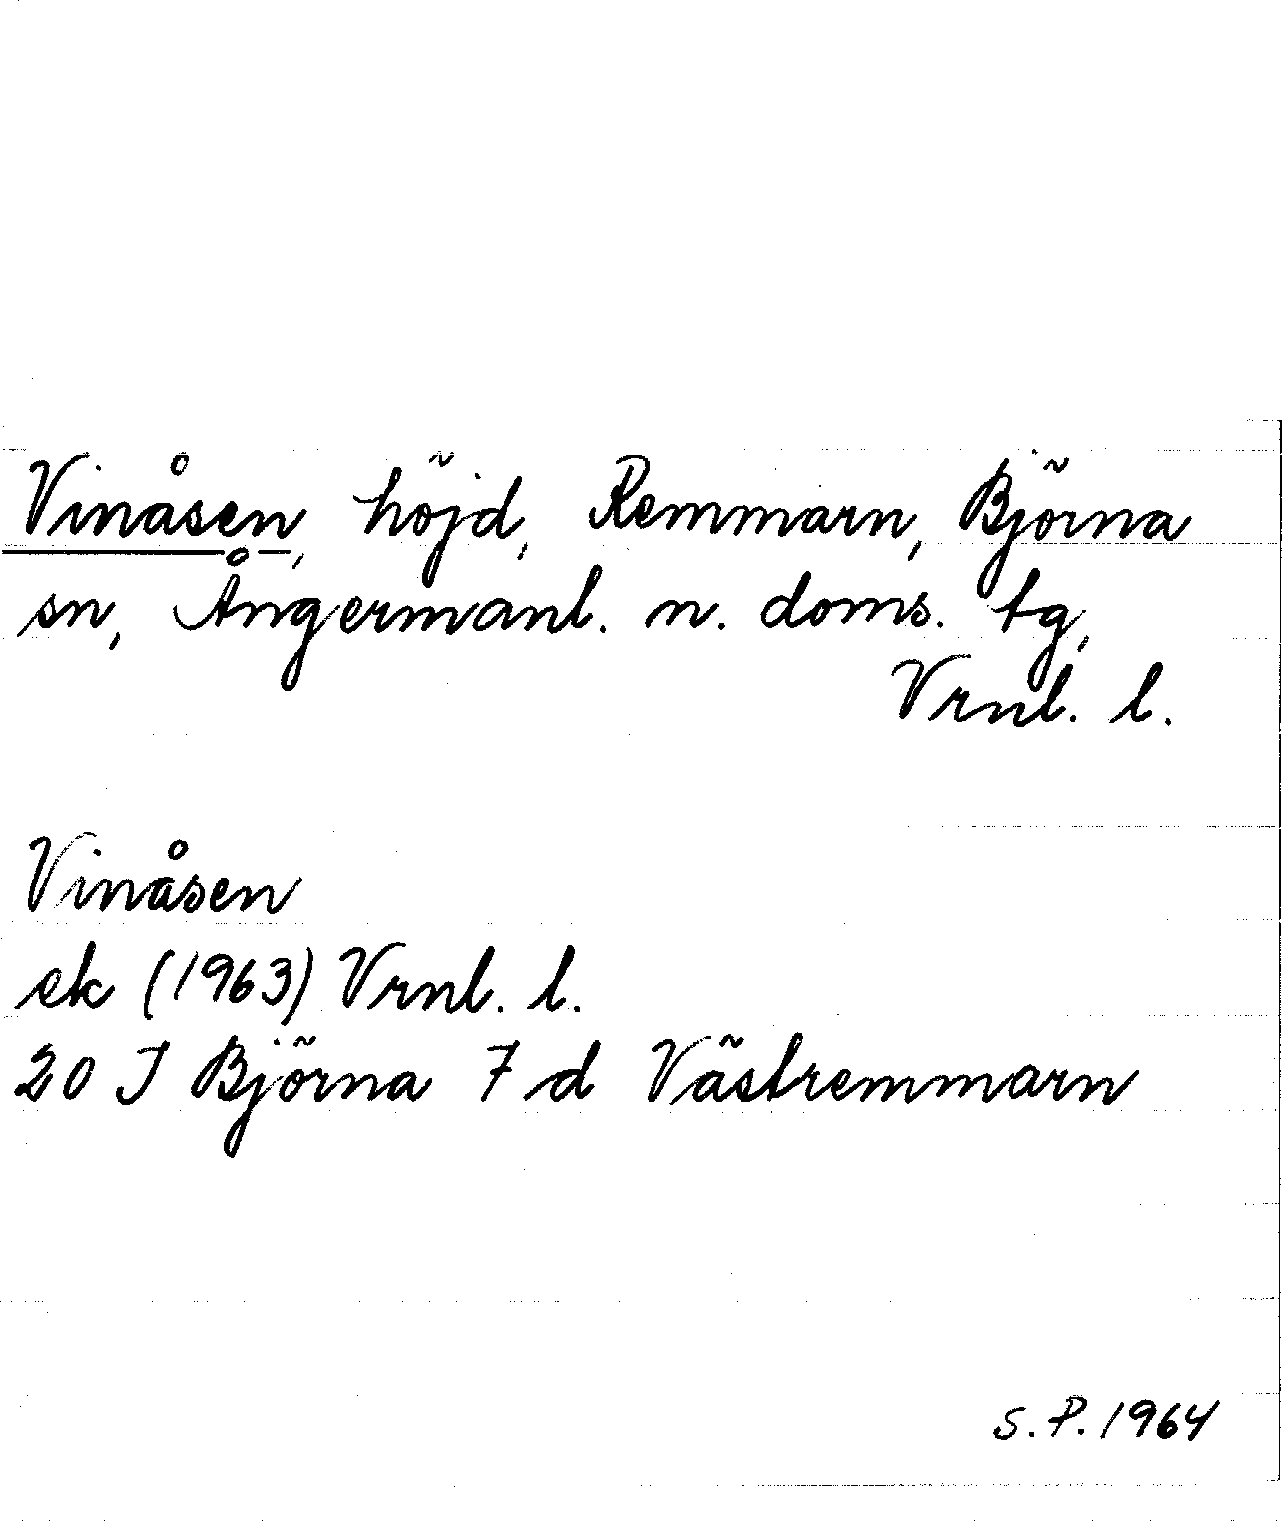 Vinåsen, höjd, Remmarn, Björna
sn, Ångermanl. n. doms. tg,
Vrnl. l.
Vinåsen
ek (1963) Vrnl. l.
20 J Björna 7 d Västremmarn
S. P. 1964